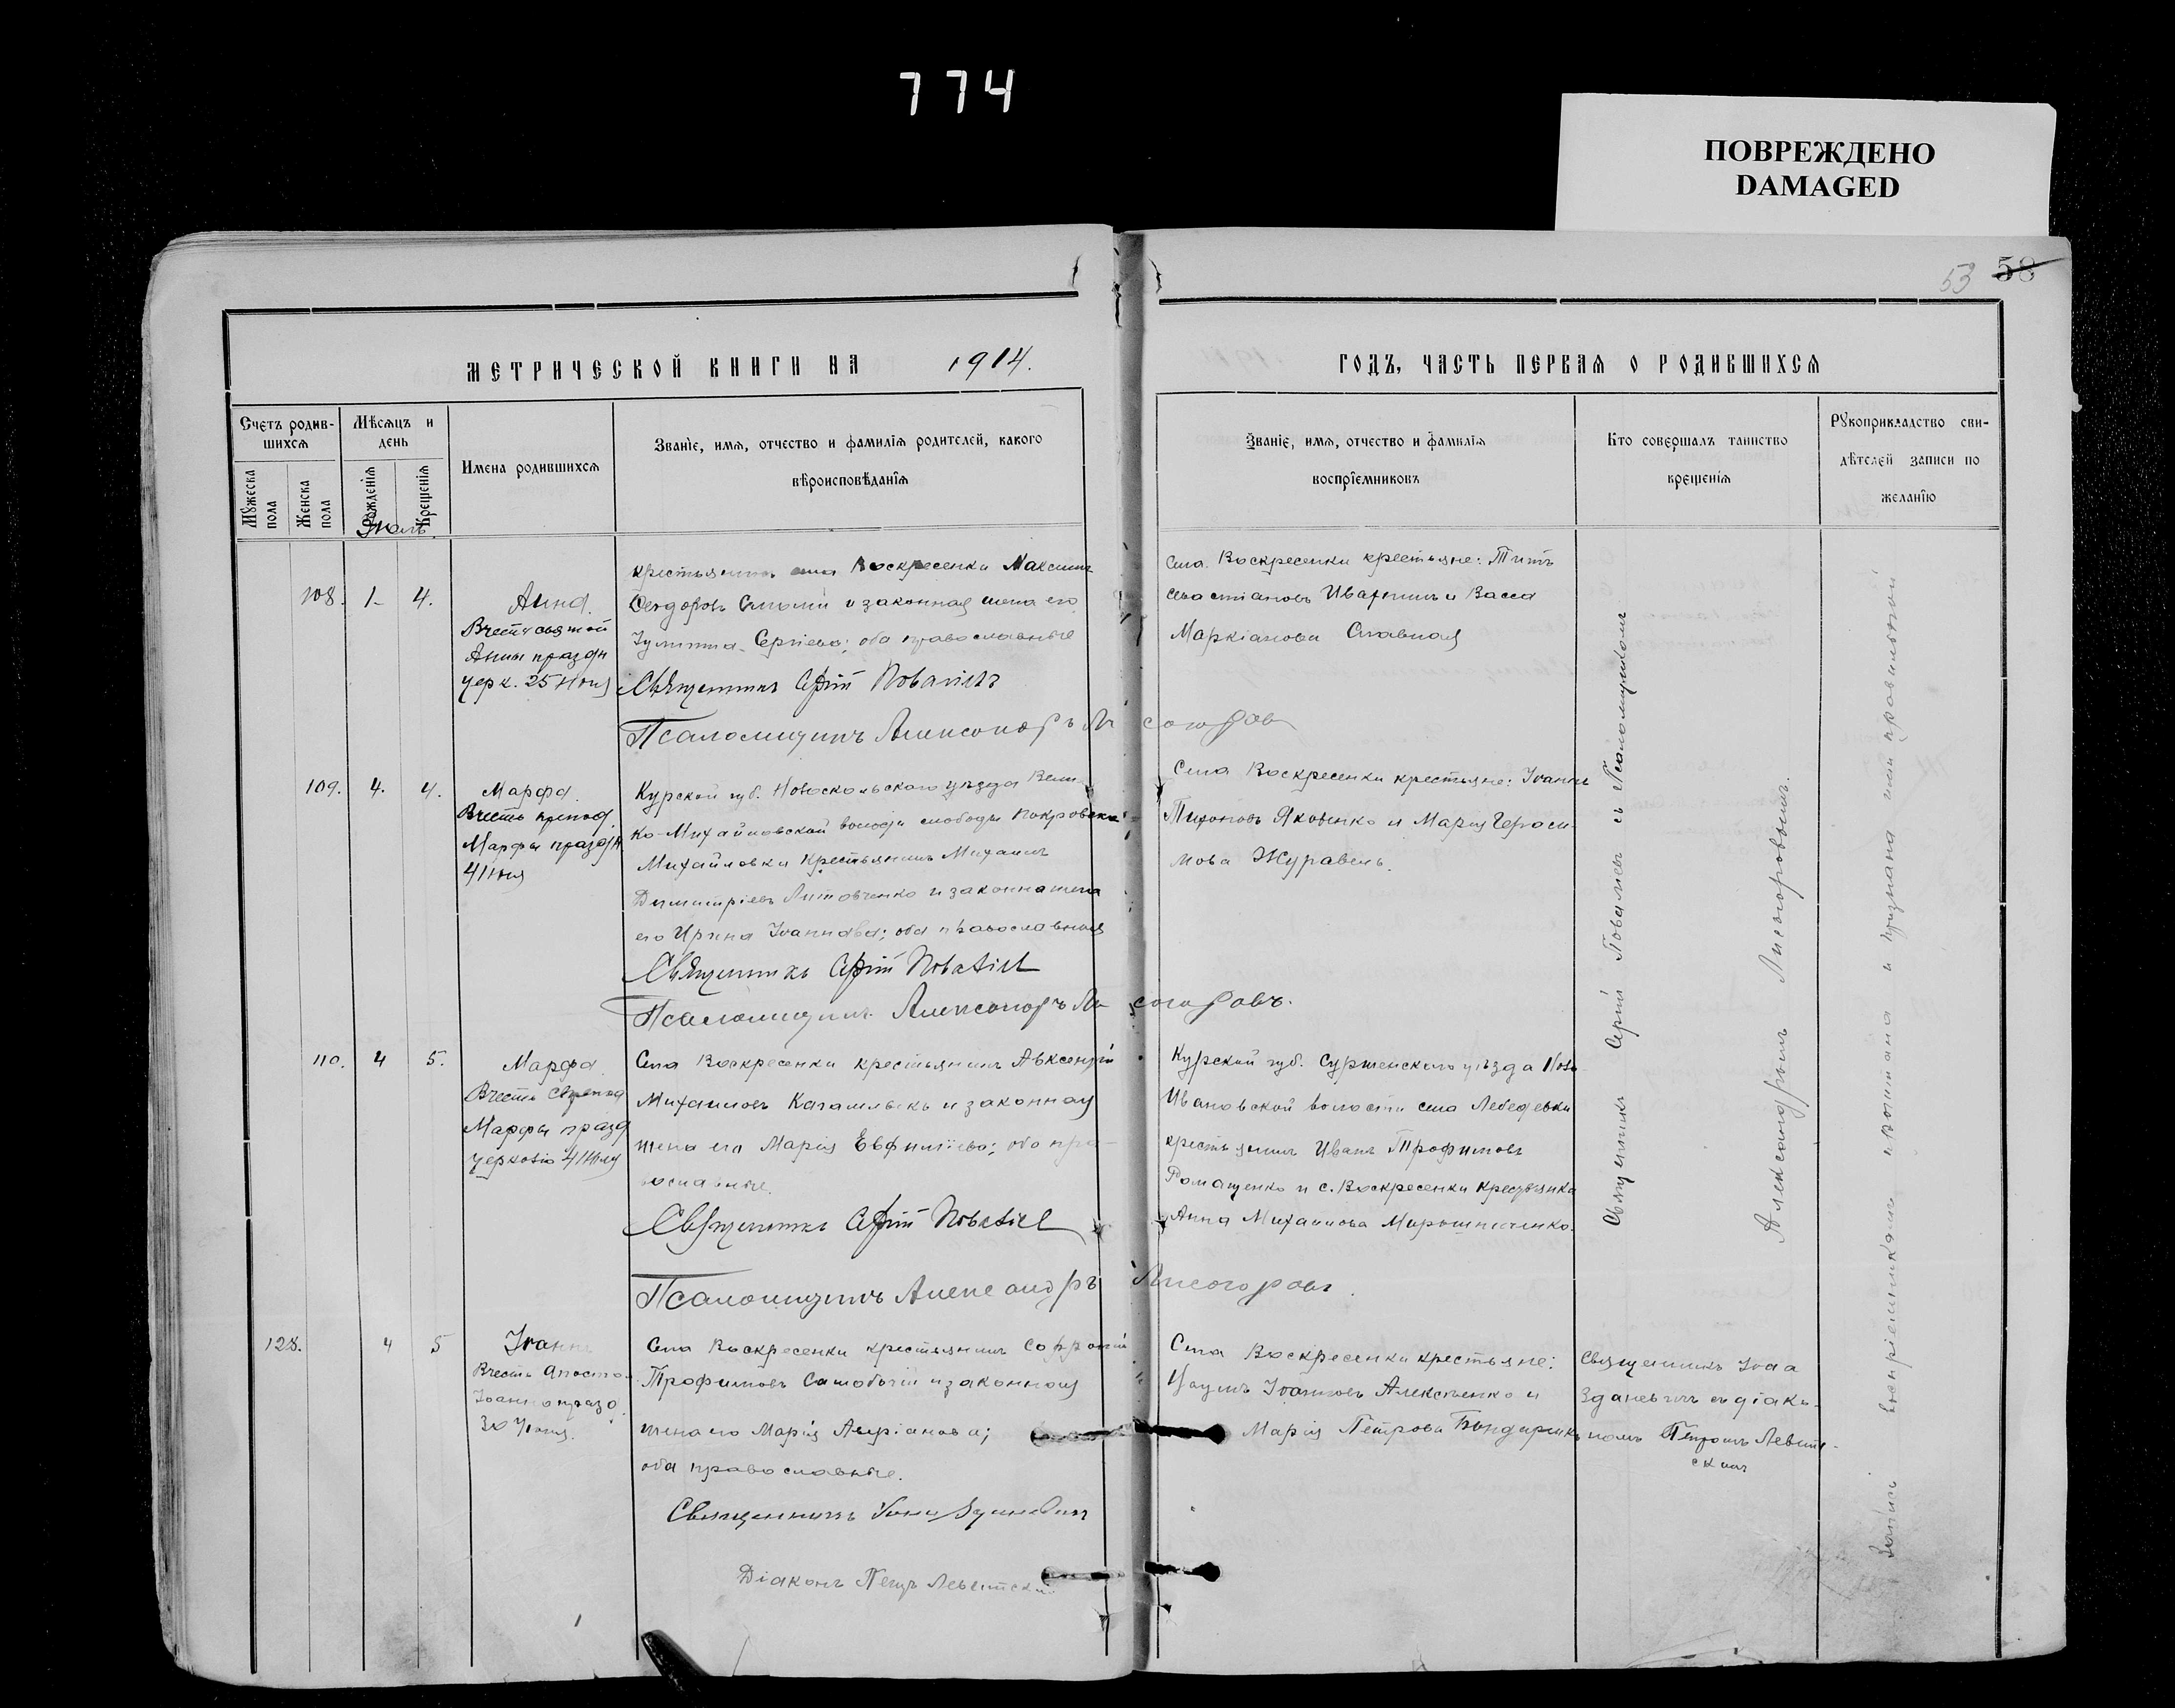 774
ПОВРЕЖДЕНО
DAMAGED
53 58
МЕТРИЧЕСКОЙ КНИГИ НА 1914.
ГОДЪ, ЧАСТЬ ПЕРВАЯ О РОДИВШИХСЯ
Счетъ родив-
шихся
Мужеска пола
Женска пола
Мѣсяцъ и
день
Рожденія
Крещенія
Имена родившихся
Званіе, имя, отчество и фамилія родителей, какого
вѣроисповѣданія
Званіе, имя, отчество и фамилія
воспріемниковъ
Кто совершалъ таинство
крещенія
Рукоприкладство сви-
дѣтелей записи по
желанію
Іюль.
108. 1. 4.
Анна.
Въ честь святой
Анны праздн
церк. 25 Июля
крестьянинъ села Воскресенки Максимъ
Ѳеодоровъ и законная жена его
Іулитта Сергіева; оба православные
Священникъ Сергій Поваляевъ
Псаломщикъ Александръ Лисогоровъ
Села Воскресенки крестьяне: Титъ
Севастіановъ и Васса
Маркіанова Славная
109. 4. 4.
Марфа.
Въ честь препод.
Марфы праздн.
4 Июля
Курской губ. Новоскольского уѣзда Вели-
ко-Михайловской волости слободы Покровско-
Михайловки крестьянинъ Михаилъ
Димитріевъ Литовченко и законна жена
его Ирина Іоаннова; оба православные
Священникъ Сергій Поваляевъ
Псаломщикъ Александръ Лисогоровъ.
Села Воскресенки крестьяне: Іоаннъ
Тихоновъ Яковенко и Марія Гераси-
мова Журавель.
110. 4 5.
Марфа.
Въ честь препод
Марфы празд
церковію 4 Июля
Села Воскресенки крестьянинъ Авксентій
Михаиловъ Кагамлыкъ и законная
жена его Марія Евфиміева; оба пра-
вославные.
Священникъ Сергій Поваляевъ
Псаломщикъ Александръ Лисогоровъ.
Курской губ. Судженскаго уѣзда Ново-
Ивановской волости села Лебедевки
крестьянинъ Иванъ Трофимовъ
Ромащенко и с. Воскресенки крестьянка
Анна Михаилова Мирошниченко.
128. 4 5
Іоаннъ
Въ честь Апосто-
Іоанна празд.
30 Июня.
Села Воскресенки крестьянинъ Софроній
Трофимовъ Самобочій и законная
жена его Марія Андріанова;
оба православные.
Священникъ Іоаннъ Зданевичъ
Діаконъ Петръ Левитскій
Села Воскресенки крестьяне:
Наумъ Іоанновъ Алексѣенко и
Марія Петрова Бондаренко
Священникъ Іоаннъ
Зданевичъ съ діако-
номъ Петромъ Левит-
скимъ
Священникъ Сергій Поваляевъ съ Псаломщикомъ
Александромъ Лисогоровымъ.
Запись воспріемникамъ прочитана и признана ими правильной